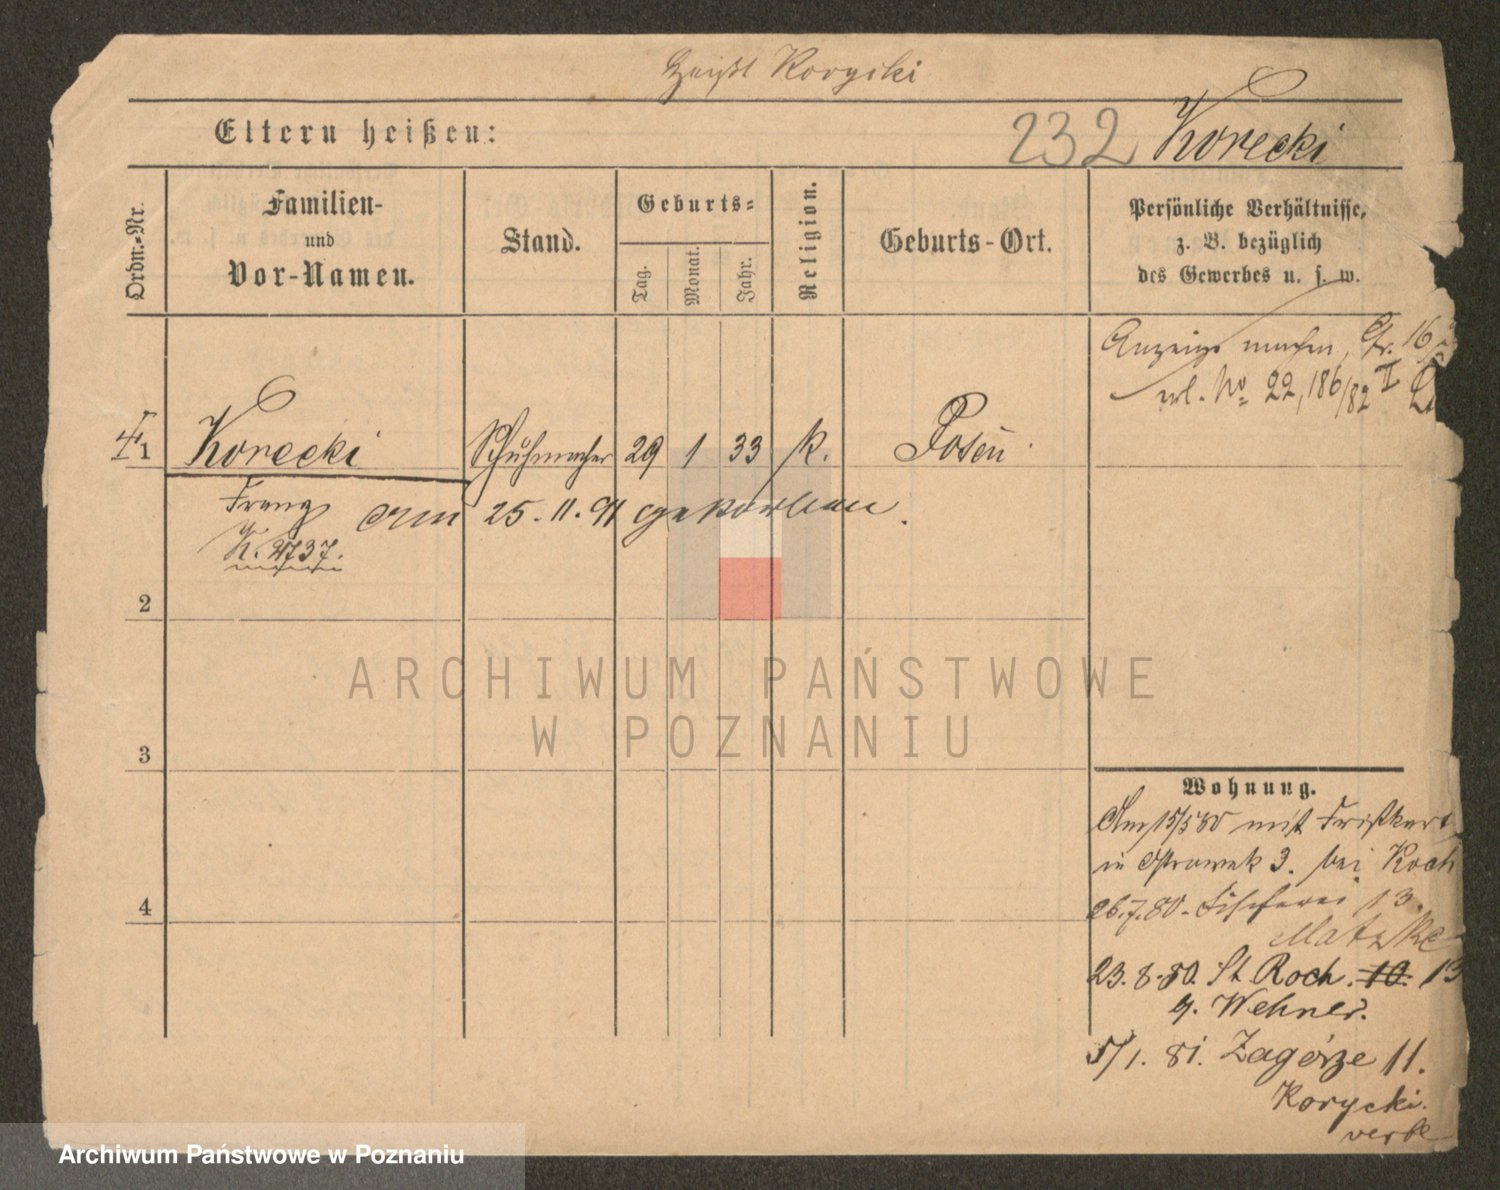 heißt Korycki
Eltern heißen:
232 Korecki
Ordn.-Nr.
Familien-
und
Vor-Namen.
Stand.
Geburts-
Tag.
Monat.
Jahr.
Religion.
Geburts-Ort.
Persönliche Verhältnisse,
z. B. bezüglich
des Gewerbes u. s. w.
Anzeige machen, Gr. 16
erl. No 22,186/82 II
1 Korecki Schuhmacher 29 1 33 k. Posen
Franz am 25.11.91 gestorben.
K. 2737.
2
3
4
ARCHIWUM PAŃSTWOWE
W POZNANIU
Wohnung.
Am 15/5 80 mit Fristkart
in Ostrowek 3. bei Koch
26.7.80. Fischerei 13.
Matzke
23.8.80. St Roch. 10. 13
b. Wehner.
5/1. 81. Zagórze 11.
Korycki.
Archiwum Państwowe w Poznaniu